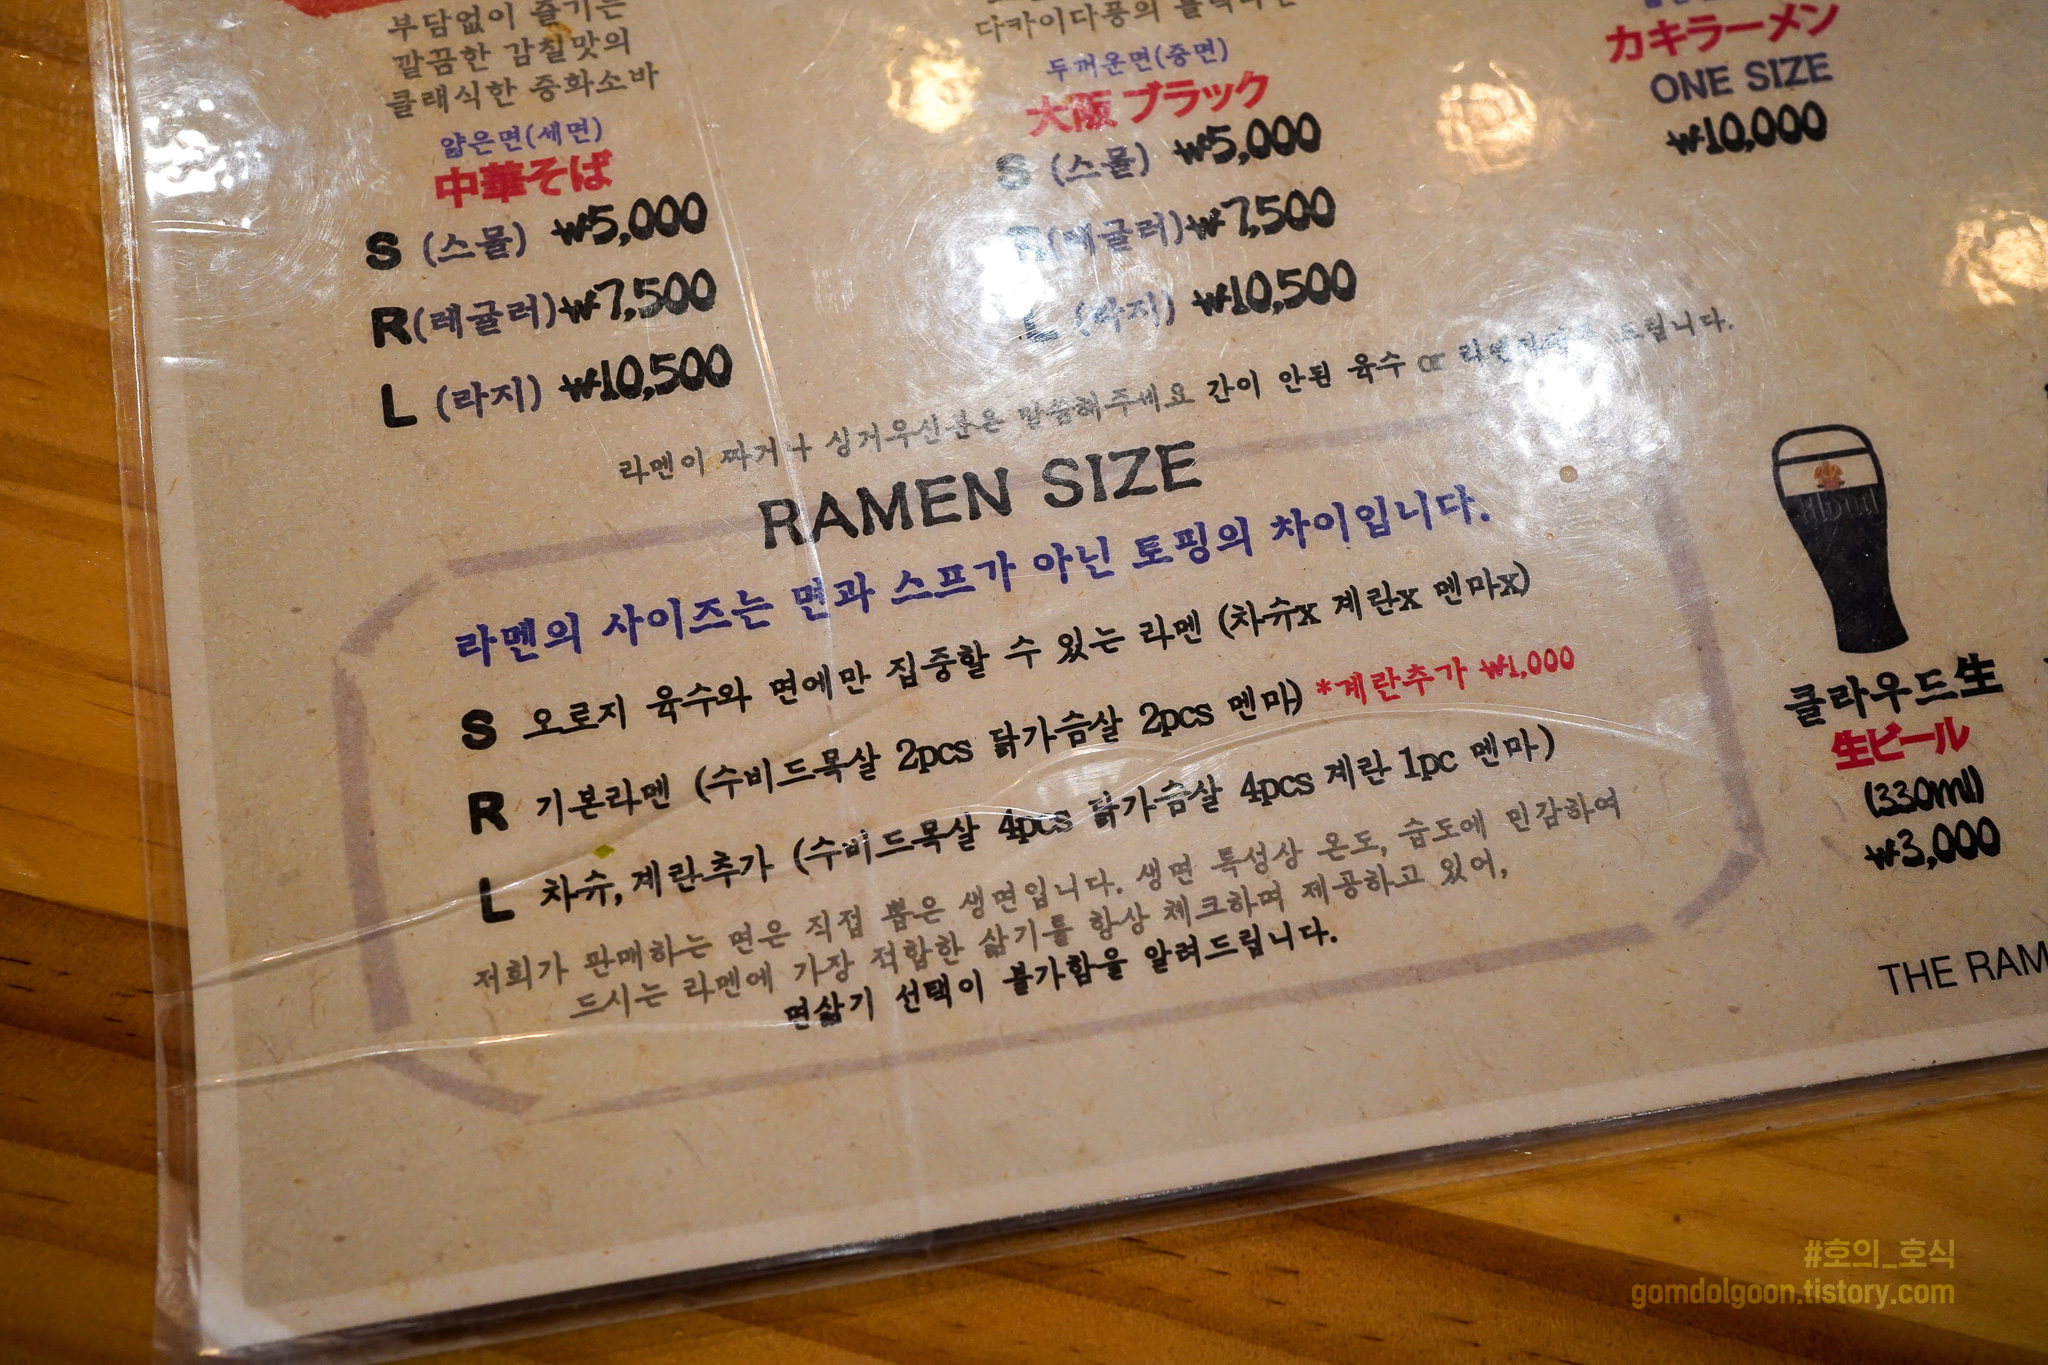 부담없이 즐기는
깔끔한 감칠맛의
클래식한 중화소바
얇은면(세면)
中華そば
S (스몰) ₩5,000
R(레귤러)₩7,500
L (라지) ₩10,500
다카이다풍의
두꺼운면(중면)
大阪 ブラック
S (스몰) ₩5,000
R(레귤러)₩7,500
L (라지) ₩10,500
カキラーメン
ONE SIZE
₩10,000
라멘이 짜거나 싱거우신분은 말씀해주세요 간이 안된 육수 or 드립니다.
RAMEN SIZE
라멘의 사이즈는 면과 스프가 아닌 토핑의 차이입니다.
S 오로지 육수와 면에만 집중할 수 있는 라멘 (차슈x 계란x 멘마x)
R 기본라멘 (수비드목살 2pcs 닭가슴살 2pcs 멘마) *계란추가 ₩1,000
L 차슈,계란추가 (수비드목살 4pcs 닭가슴살 4pcs 계란 1pc 멘마)
저희가 판매하는 면은 직접 뽑은 생면입니다. 생면 특성상 온도, 습도에 민감하여
드시는 라멘에 가장 적합한 삶기를 항상 체크하며 제공하고 있어,
면삶기 선택이 불가함을 알려드립니다.
클라우드生
生ビール
(330ml)
₩3,000
THE RAM
#호의_호식
gomdolgoon.tistory.com